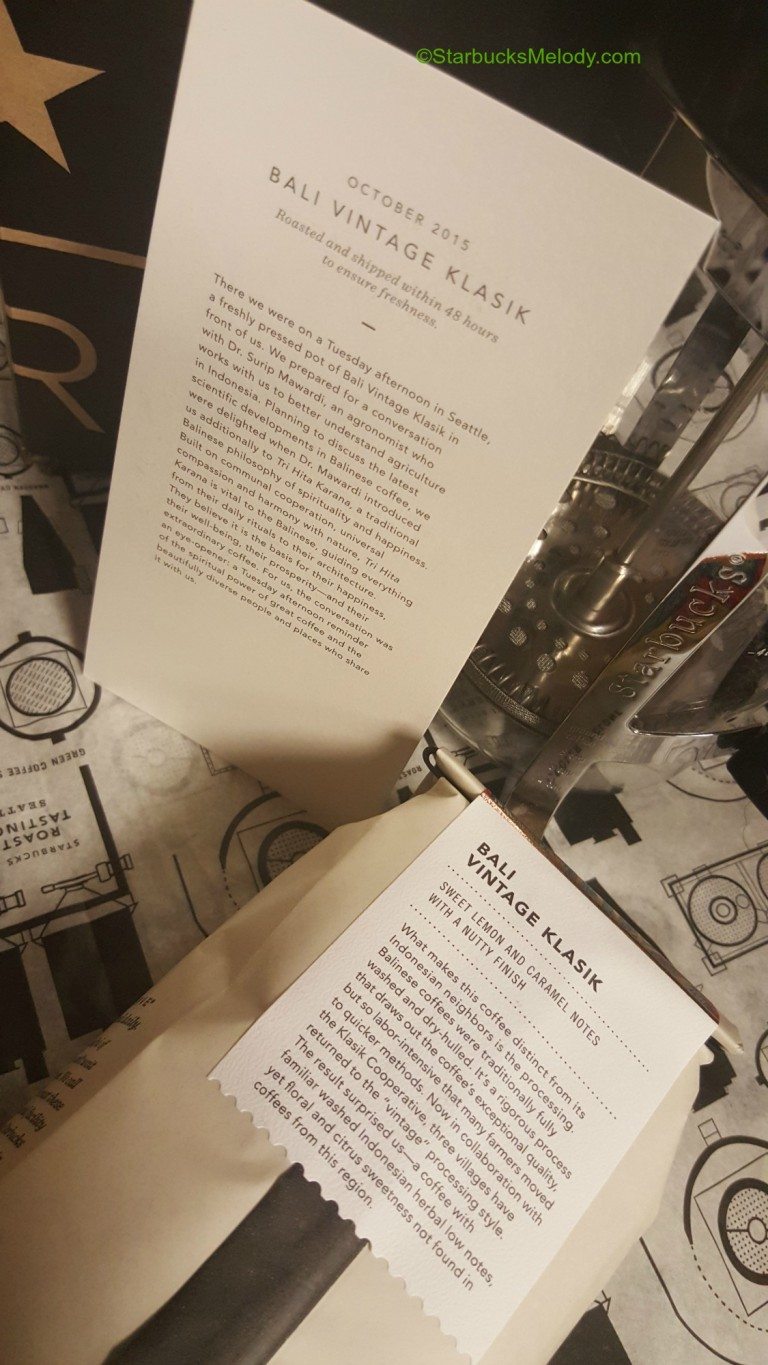 ©StarbucksMelody.com
OCTOBER 2015
BALI VINTAGE KLASIK
Roasted and shipped within 48 hours
to ensure freshness.
There we were on a Tuesday afternoon in Seattle,
a freshly pressed pot of Bali Vintage Klasik in
front of us. We prepared for a conversation
with Dr. Surip Mawardi, an agronomist who
works with us to better understand agriculture
in Indonesia. Planning to discuss the latest
scientific developments in Balinese coffee, we
were delighted when Dr. Mawardi introduced
us additionally to Tri Hita Karana, a traditional
Balinese philosophy of spirituality and happiness.
Built on communal cooperation, universal
compassion and harmony with nature, Tri Hita
Karana is vital to the Balinese, guiding everything
from their daily rituals to their architecture.
They believe it is the basis for their happiness,
their well-being, their prosperity—and their
extraordinary coffee. For us, the conversation was
an eye-opener: a Tuesday afternoon reminder
of the spiritual power of great coffee and the
beautifully diverse people and places who share
it with us.
R
Starbucks®
GREEN COFFEE
STARBUCKS
ROAST
TASTING
SEATT
BALI
VINTAGE KLASIK
SWEET LEMON AND CARAMEL NOTES
WITH A NUTTY FINISH
What makes this coffee distinct from its
Indonesian neighbors is the processing.
Balinese coffees were traditionally fully
washed and dry-hulled. It's a rigorous process
that draws out the coffee's exceptional quality,
but so labor-intensive that many farmers moved
to quicker methods. Now in collaboration with
the Klasik Cooperative, three villages have
returned to the "vintage" processing style.
The result surprised us—a coffee with
familiar washed Indonesian herbal low notes,
yet floral and citrus sweetness not found in
coffees from this region.